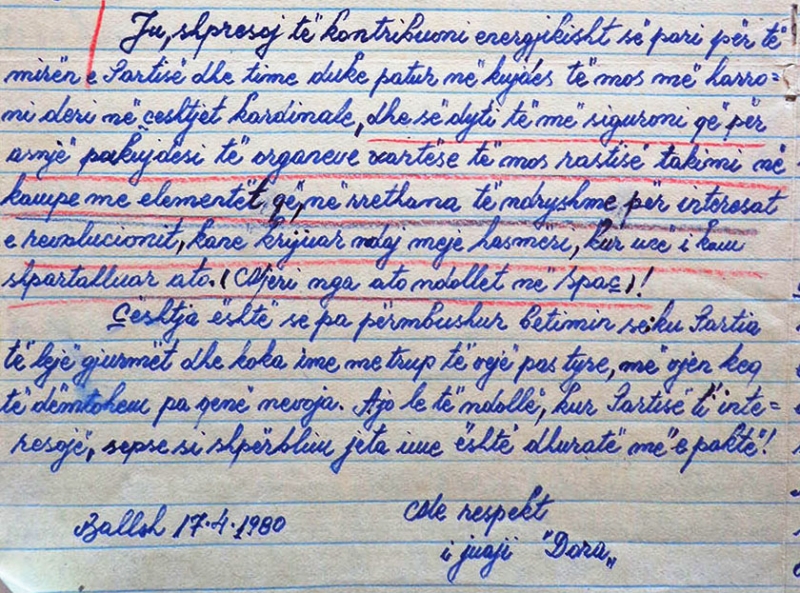 Ju, shpresoj të kontribuoni energjikisht së pari për të
mirën e Partisë dhe time duke patur në kujdes të mos më harro=
ni deri në çeshtjet kardinale, dhe së dyti të më siguroni që për
asnjë pakujdesi të organeve vartëse të mos rastisë takimi në
kampe me elementët që, në rrethana të ndryshme për interesat
e revolucionit, kanë krijuar ndaj meje hasmëri, kur unë i kam
shpartalluar ato. (Njëri nga ato ndollet në Spaç)!
Çështja është se pa përmbushur betimin se: ku Partia
të lejë gjurmët dhe koka ime me trup të vejë pas tyre, më vjen keq
të dëmtohem pa qenë nevoja. Ajo le të ndollë, kur Partisë ti inte=
resojë, sepse si shpërblim jeta ime është dhuratë më e paktë!
Ballsh 17·4·1980
Me respekt
i juaji "Dora„